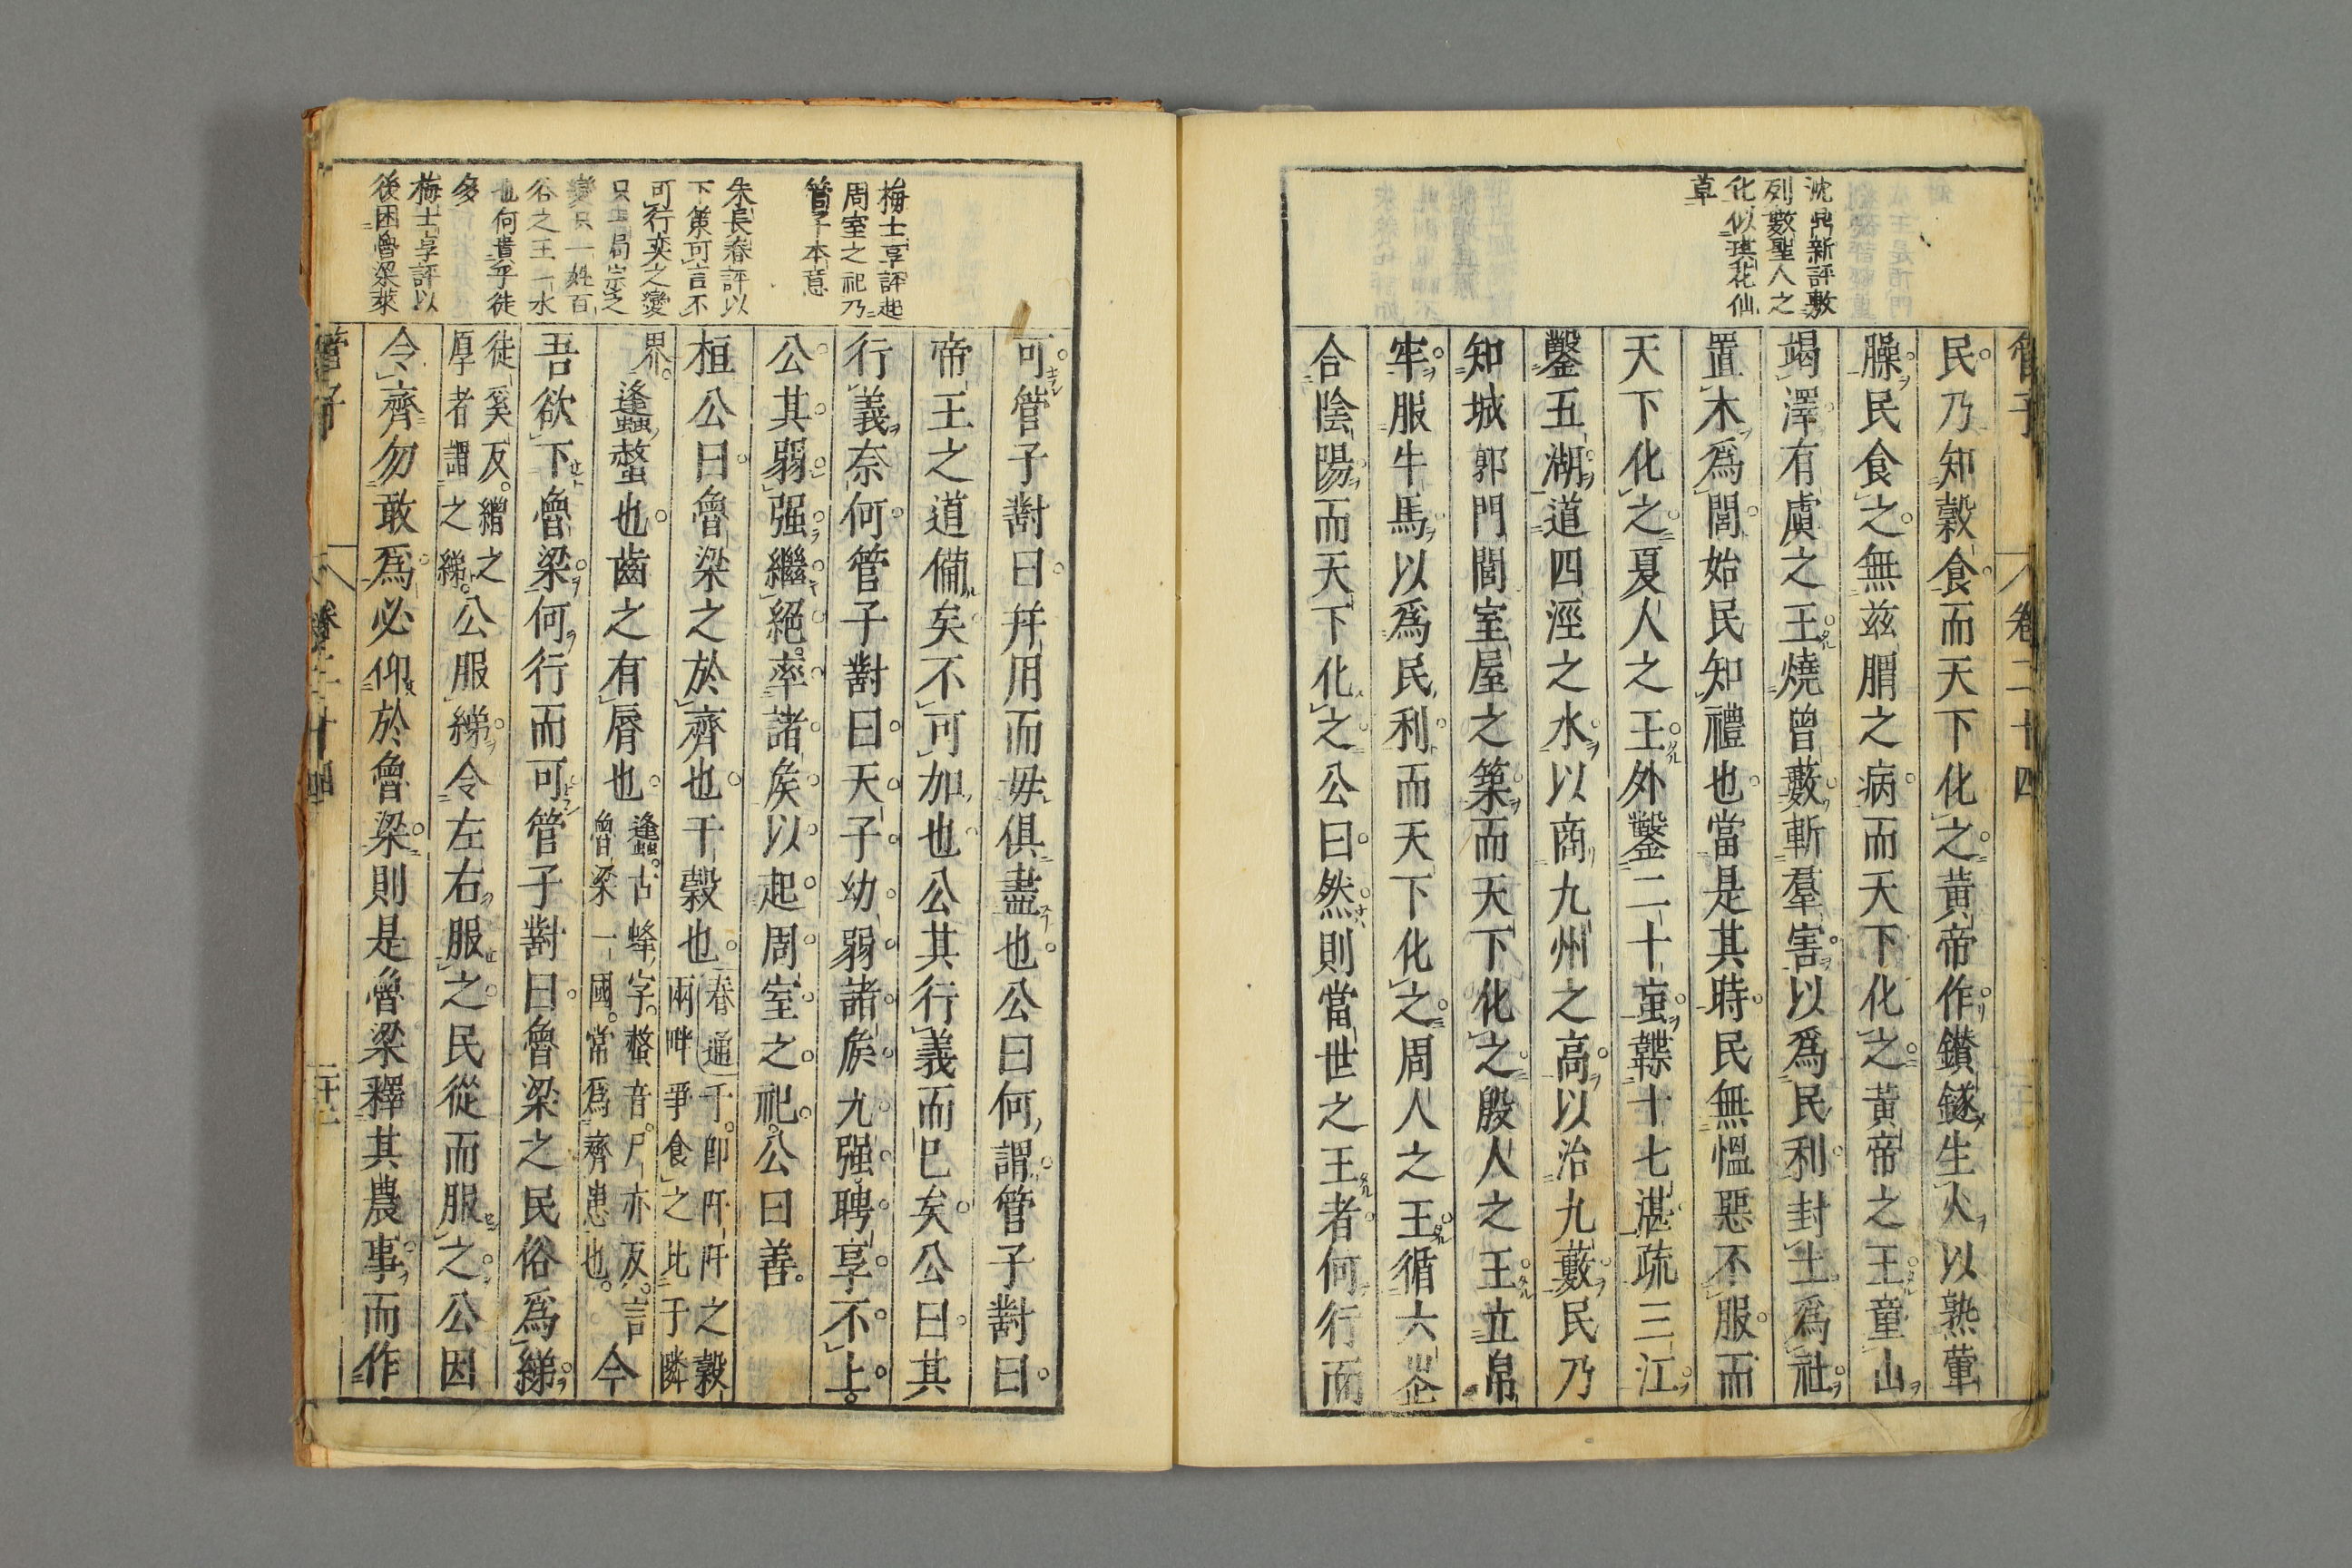 管子
卷二十四
沈鼎新評敷
列數聖人之
化似琪花仙
草
民乃知穀食而天下化之黃帝作鑽鐩生火以熟葷
臊民食之無茲䐜之病而天下化之黃帝之王童山
竭澤有虞之王燒曾藪斬羣害以爲民利封土爲社
置木爲閭始民知禮也當是其時民無慍惡不服而
天下化之夏人之王外鑿二十䖟韘十七湛疏三江
鑿五湖道四涇之水以商九州之高以治九藪民乃
知城郭門閭室屋之築而天下化之殷人之王立帛
牢服牛馬以爲民利而天下化之周人之王循六㤅
合陰陽而天下化之公曰然則當世之王者何行而
梅士享評起
周室之祀乃
管子本意
朱長春評以
下策可言不
可行奕之變
只半局宗之
變只一姓百
谷之王一水
也何貴乎徒
多
梅士享評以
後困魯梁萊
可管子對曰幷用而毋俱盡也公曰何謂管子對曰
帝王之道備矣不可加也公其行義而已矣公曰其
行義奈何管子對曰天子幼弱諸矦亢强聘享不上
公其弱强繼絕率諸矦以起周室之祀公曰善
桓公曰魯梁之於齊也千穀也春通千卽阡阡之穀
兩畔爭食之比于隣
界逢蟲螫也齒之有脣也蠭古蜂字螫音尸亦反言
魯梁一國常爲齊患也今
吾欲下魯梁何行而可管子對曰魯梁之民俗爲綈
徒奚反繒之
厚者謂之綈公服綈令左右服之民從而服之公因
令齊勿敢爲必仰於魯梁則是魯梁釋其農事而作
管子
卷二十四
二十二